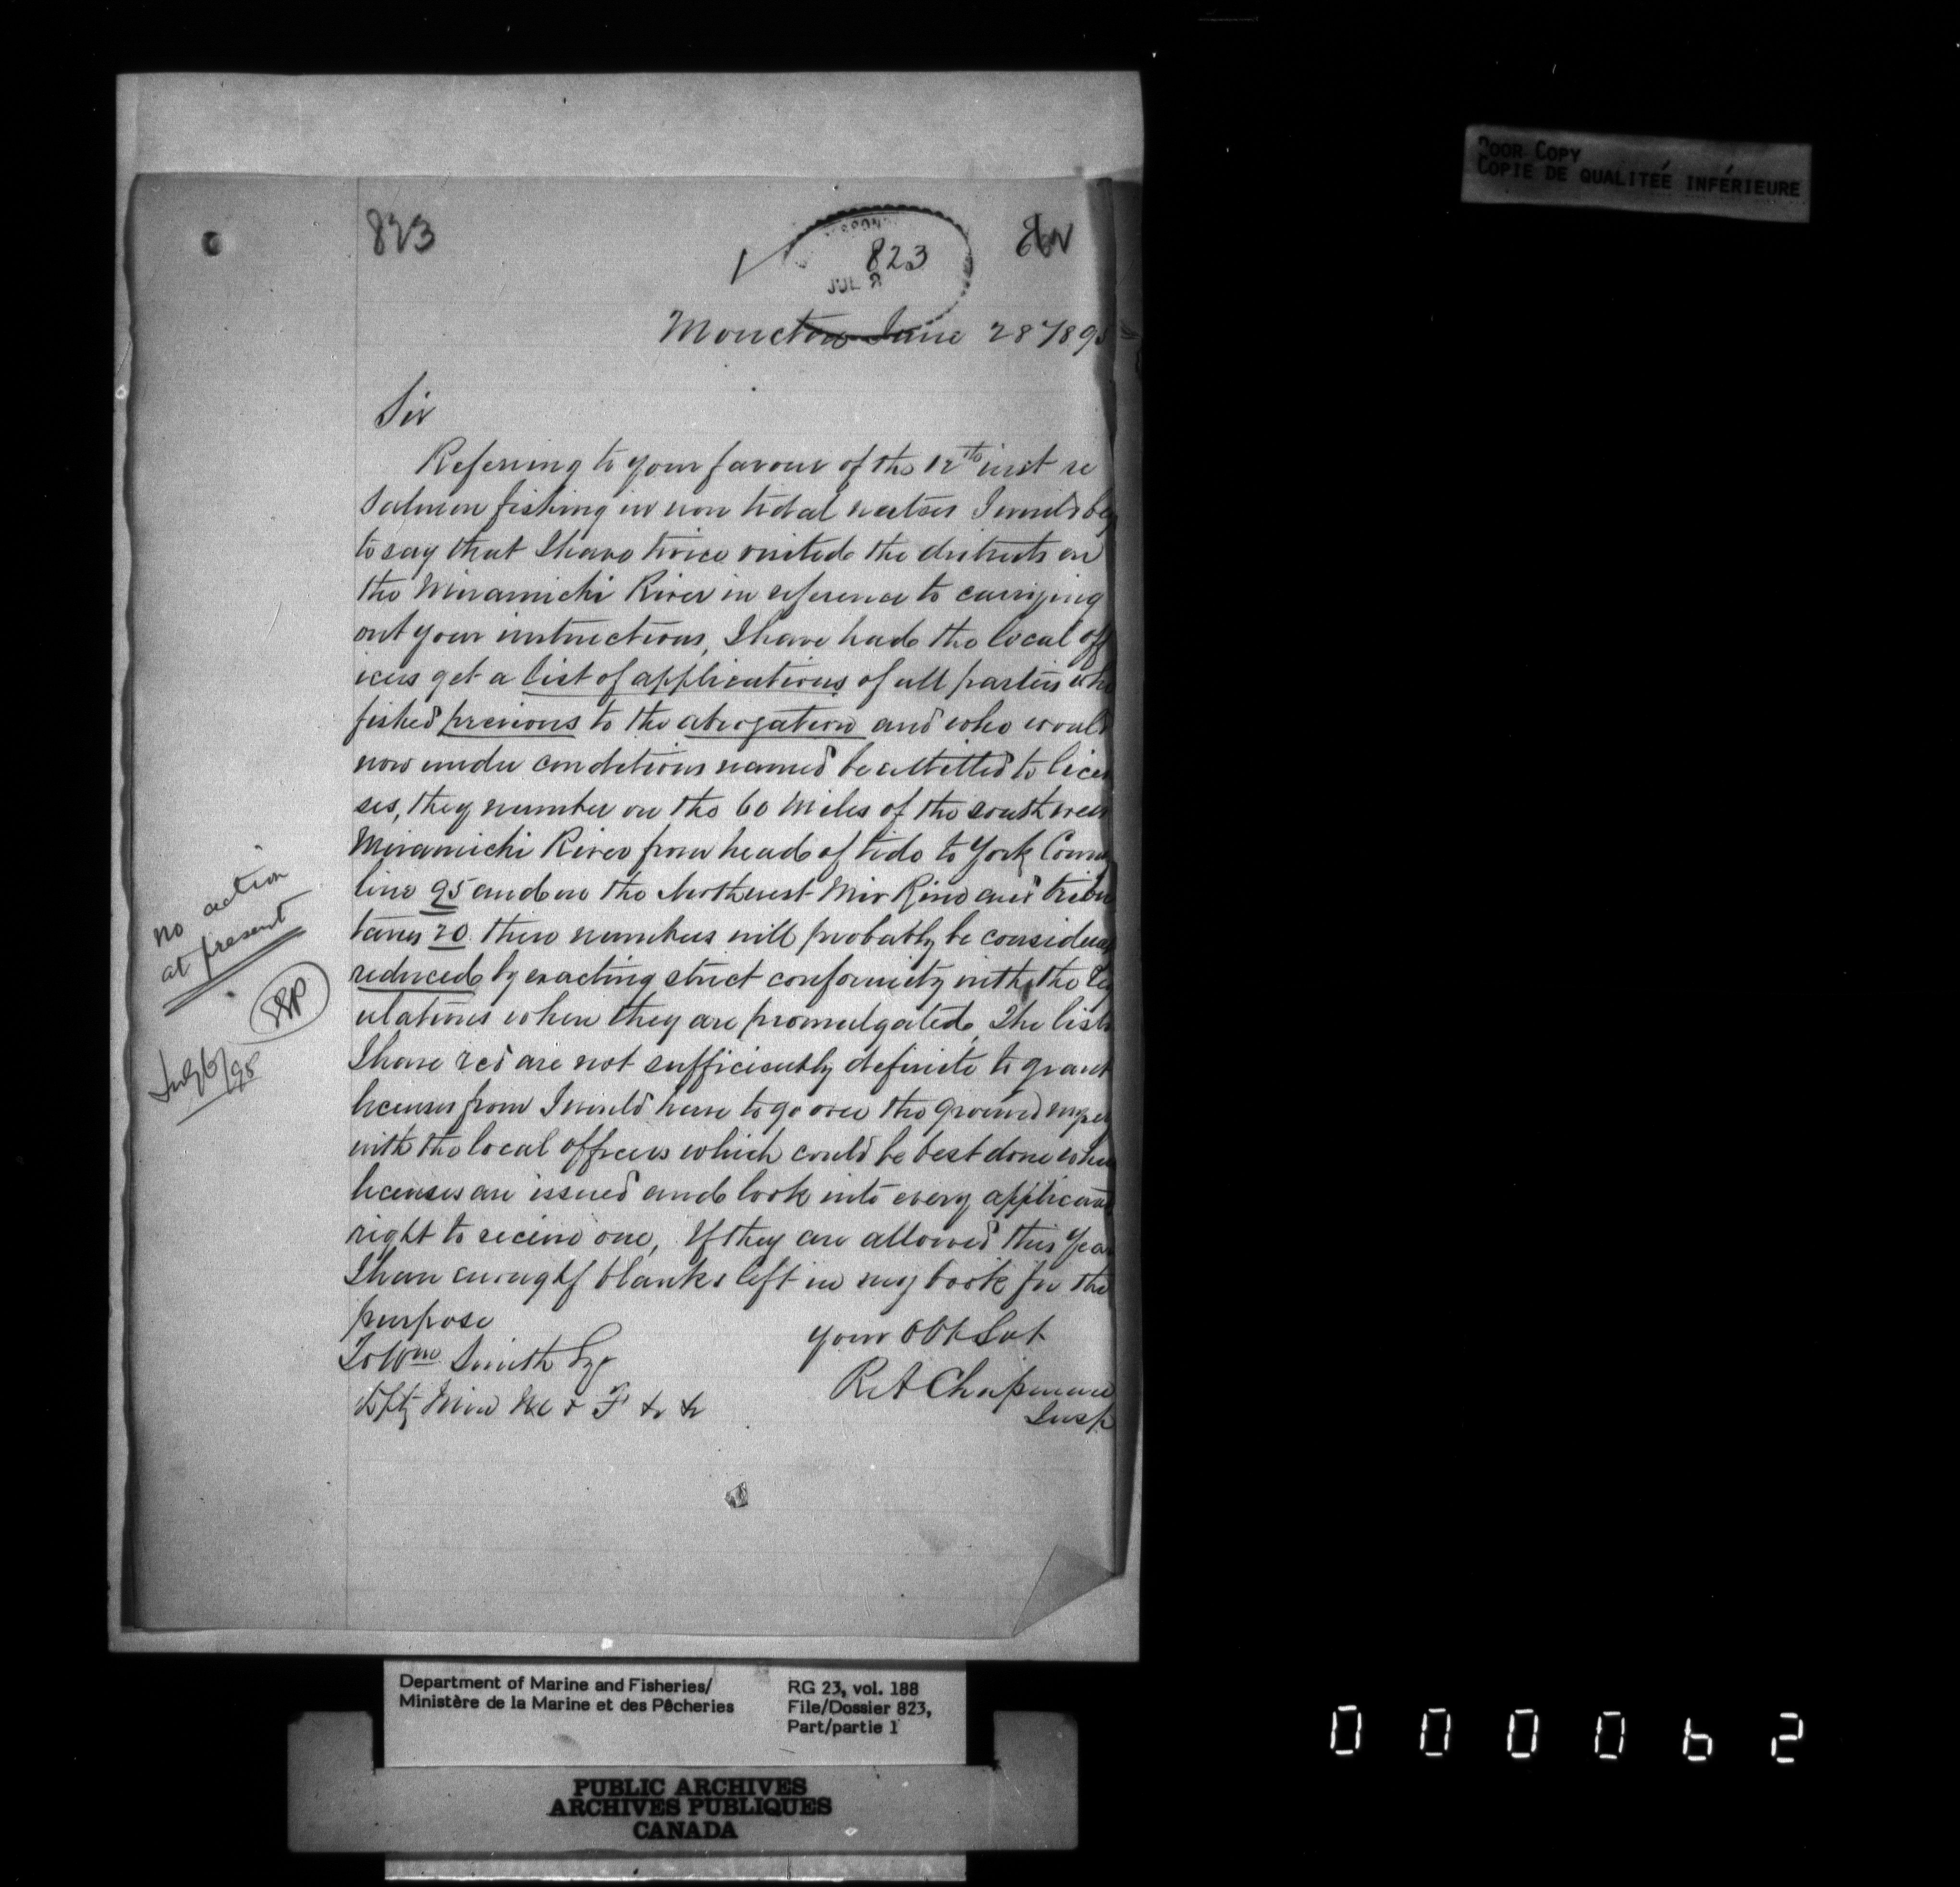 POOR COPY
COPIE DE QUALITEÉ INFÉRIEURE
823
823
JUL 2
Moncton June 28 /189
Sir
Referring to your favour of the 12th inst re
Salmon fishing in non tidal waters I would beg
to say that I have twice visited the districts on
the Miramichi River in reference to carrying
out your instructions, I have had the local off
icers get a list of applications of all parties who
fished previous to the abrogation and who would
now under conditions named be entitled to licen
ses, they number on the 60 miles of the south west
Miramichi River from head of tide to York County
line 95 and on the Northwest Mir River and tribu
taries 20 these numbers will probably be considerably
reduced by exacting strict conformity with the Reg
ulations when they are promulgated, The lists
I have rcd are not sufficiently definite to grant
licenses from I would have to go over the ground myself
with the local officers which could be best done when
licenses are issued and look into every applicants
right to receive one, If they are allowed this year
I have enough blanks left in my book for the
purpose
your Obt Svt
To Wm Smith Esq
R A Chapman
Insp
Dpty Min M & F & &
no action
at present
July 6/95
Department of Marine and Fisheries/
Ministère de la Marine et des Pêcheries
RG 23, vol. 188
File/Dossier 823,
Part/partie 1
PUBLIC ARCHIVES
ARCHIVES PUBLIQUES
CANADA
000062